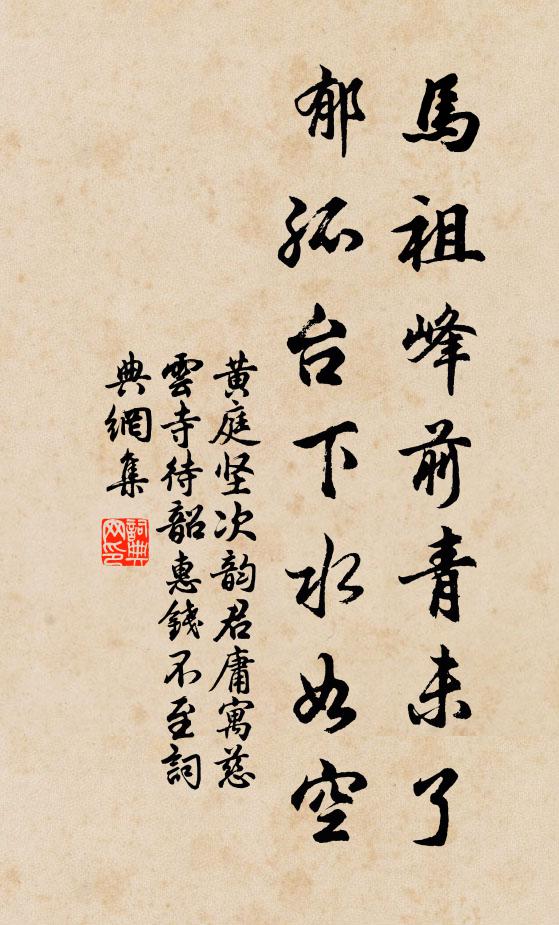 馬祖峰前青未了
郁孤台下水如空
黄庭坚次韵君庸寓慈
雲寺待韶惠錢不至詞
典網集
詞典網印